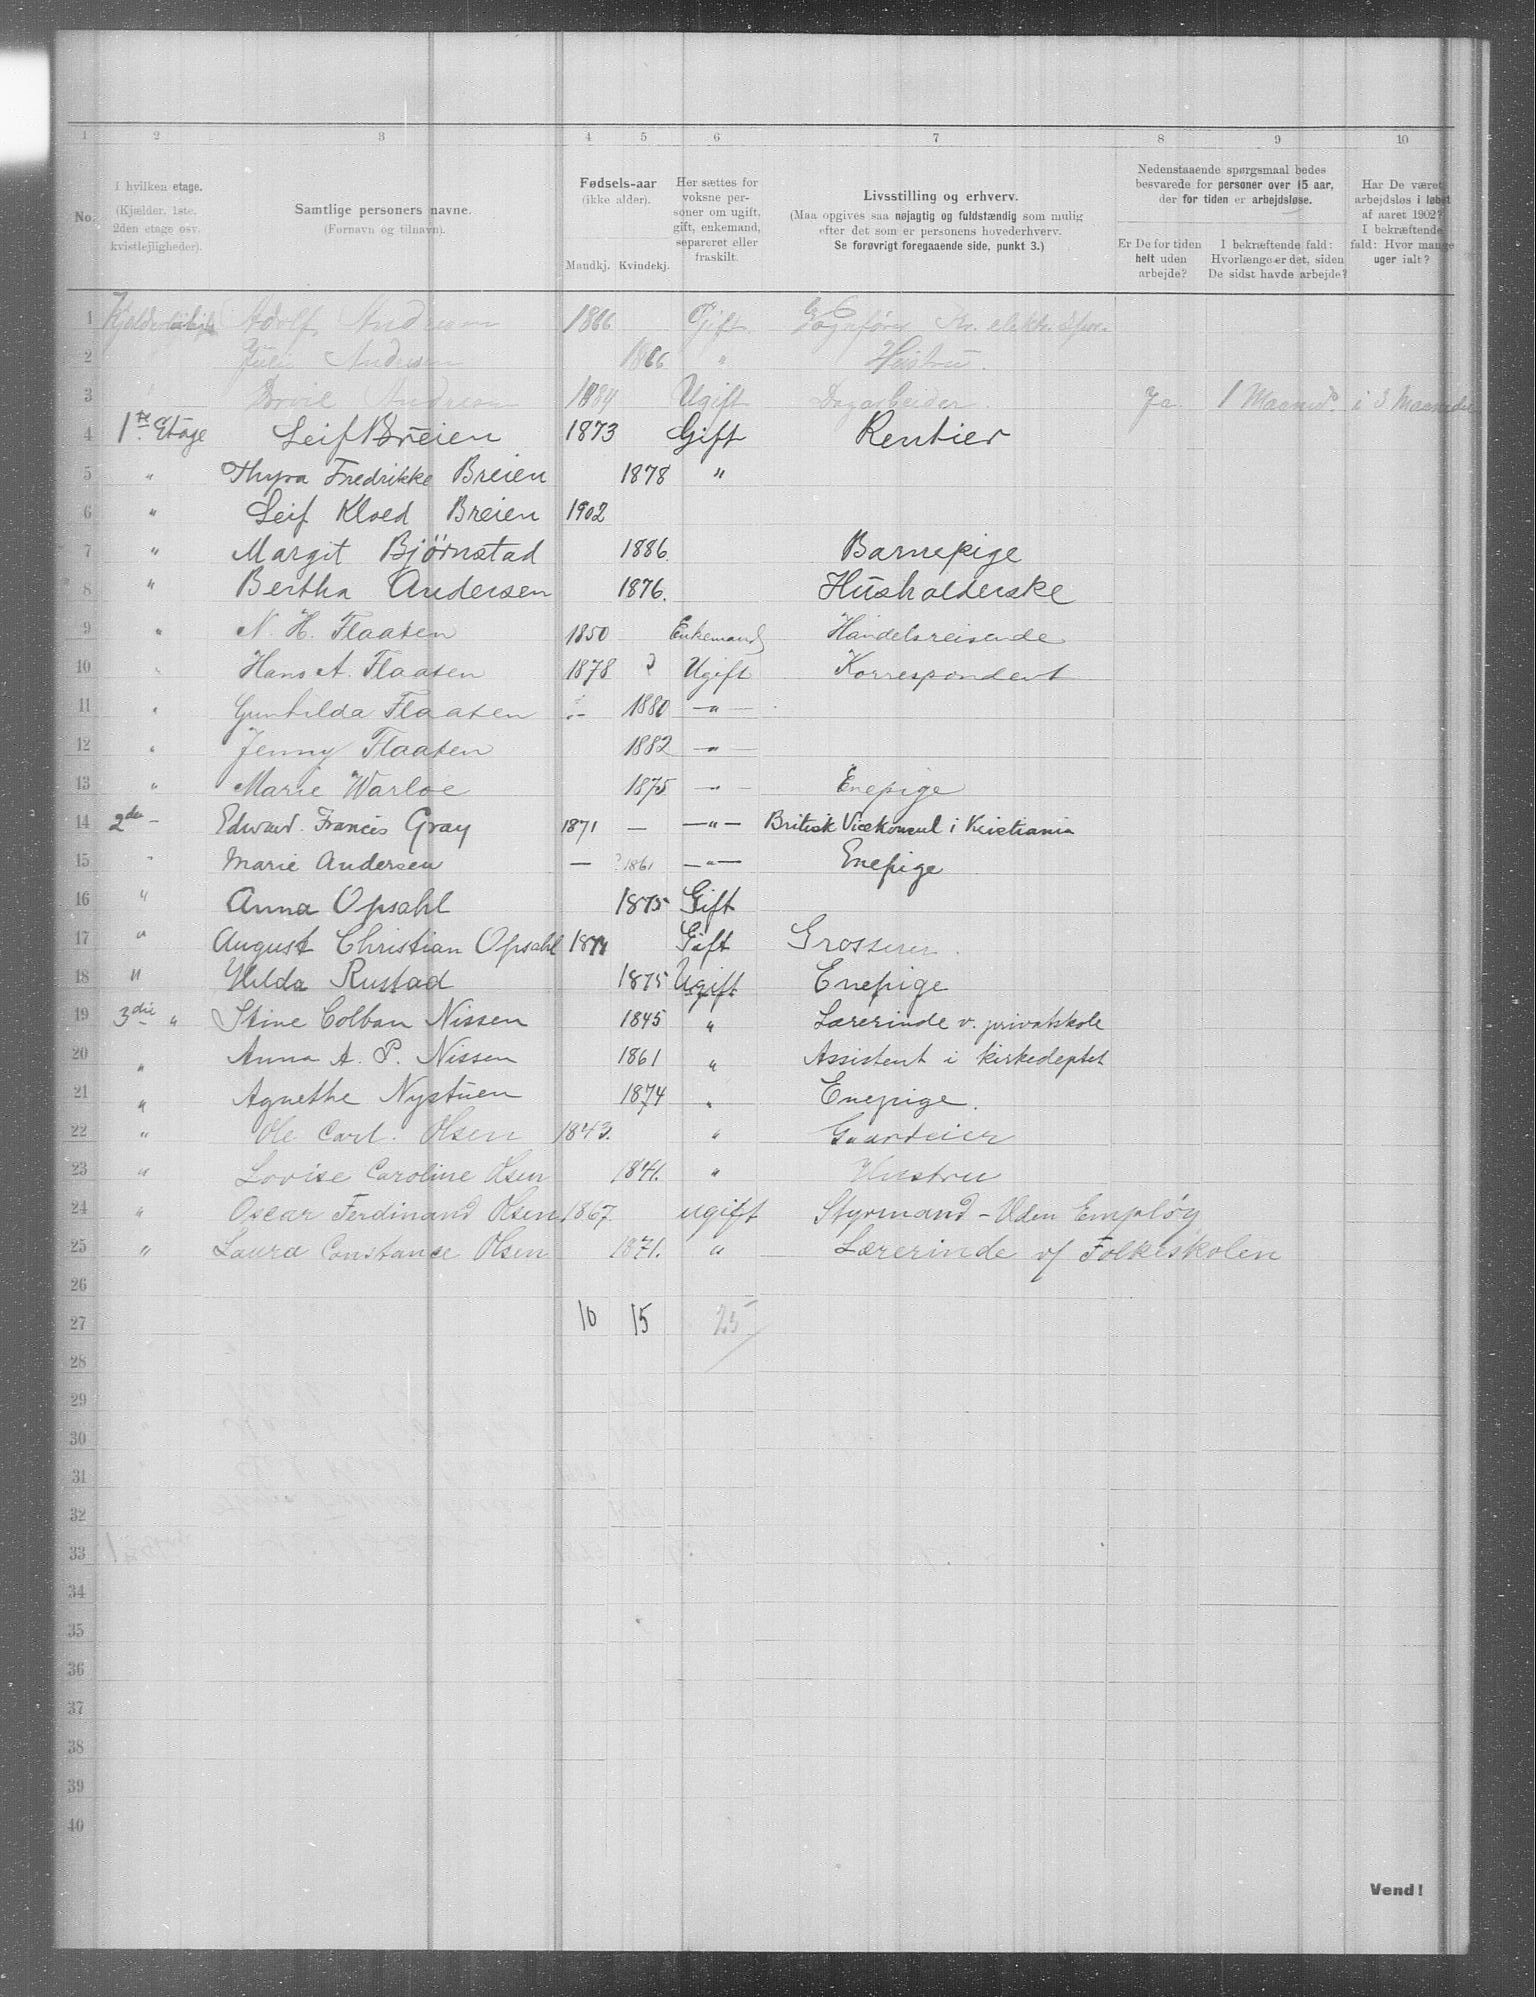 1 2 3 4 5 6 7 8 9 10
No.
I hvilken etage.
(Kjælder, 1ste.
2den etage osv.
kvistlejligheder).
Samtlige personers navne.
(Fornavn og tilnavn).
Fødsels-aar
(ikke alder).
Mandkj. Kvindekj.
Her sættes for
voksne per-
soner om ugift,
gift, enkemand,
separeret eller
fraskilt.
Livsstilling og erhverv.
(Maa opgives saa nøjagtig og fuldstændig som mulig
efter det som er personens hovederhverv.
Se forøvrigt foregaaende side, punkt 3.)
Nedenstaaende spørgsmaal bedes
besvarede for personer over 15 aar,
der for tiden er arbejdsløse.
Er De for tiden
helt uden
arbejde?
I bekræftende fald:
Hvorlænge er det, siden
De sidst havde arbejde?
Har De været
arbejdsløs i løbet
af aaret 1902?
I bekræftende
fald: Hvor mange
uger ialt?
1 Adolf Andresen 1866 Gift Vognfører Kr. elektr. spor.
2 Andresen 1866 " Hustru.
3 Andresen 1884 Ugift Dagarbeider. Ja 1 Maaned. i 3 Maaneder
4 1ste Etage Leif Breien 1873 Gift Rentier
5 " Thyra Fredrikke Breien 1878 "
6 " Leif Kloed Breien 1902
7 " Margit Bjørnstad 1886. Barnepige
8 " Bertha Andersen 1876. Husholderske
9 " N. H. Flaaten 1850 Enkemand Handelsreisende
10 " Hans A. Flaaten 1878 Ugift Korrespondent
11 " Gunhilda Flaaten 1880 —"—
12 " Jenny Flaaten 1882 —"—
13 " Marie Warloe 1875 —"— Enepige
14 2den — Edward Francis Gray 1871 — —"— Britisk Vicekonsul i Kristiania
15 " Marie Andersen — 1861 —"— Enepige
16 " Anna Opsahl 1875 Gift
17 " August Christian Opsahl 1871 Gift Grosserer.
18 " Hilda Rustad 1875 Ugift Enepige
19 3die " Stine Colban Nissen 1845 " Lærerinde v. privatskole
20 " Anna A. P. Nissen 1861 " Assistent i kirkedeptet
21 " Agnethe Nystuen 1874 " Enepige.
22 " Ole Carl. Olsen 1843. " Gaardeier
23 " Lovise Caroline Olsen 1841. " Hustru
24 " Oscar Ferdinand Olsen 1867. ugift Styrmand - Uden Empløy
25 " Laura Constance Olsen 1871. " Lærerinde v/ Folkeskolen
26
27 10 15 25
28
29
30
31
32
33
34
35
36
37
38
39
40
Vend!